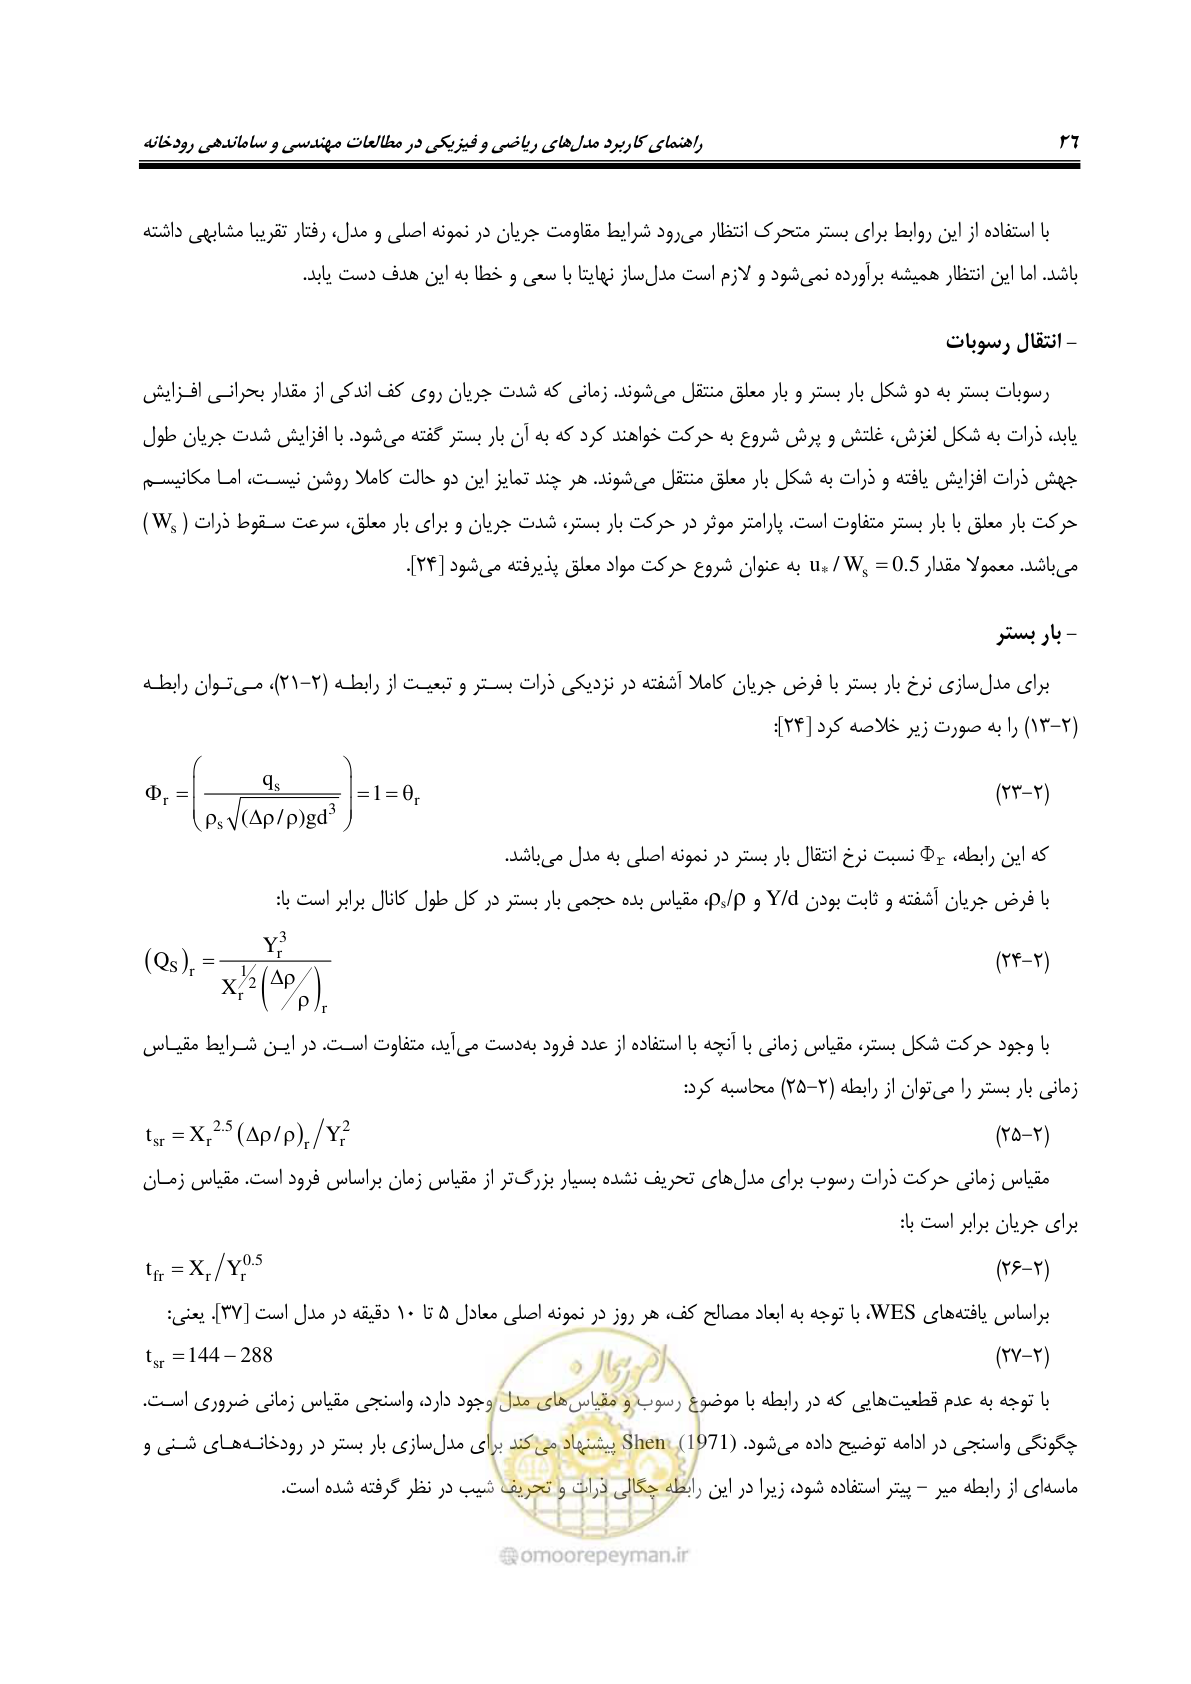 ۲۶ راهنمای کاربرد مدل‌های ریاضی و فیزیکی در مطالعات مهندسی و ساماندهی رودخانه
با استفاده از این روابط برای بستر متحرک انتظار می‌رود شرایط مقاومت جریان در نمونه اصلی و مدل، رفتار تقریبا مشابهی داشته
باشد. اما این انتظار همیشه برآورده نمی‌شود و لازم است مدل‌ساز نهایتا با سعی و خطا به این هدف دست یابد.
– انتقال رسوبات
رسوبات بستر به دو شکل بار بستر و بار معلق منتقل می‌شوند. زمانی که شدت جریان روی کف اندکی از مقدار بحرانی افزایش
یابد، ذرات به شکل لغزش، غلتش و پرش شروع به حرکت خواهند کرد که به آن بار بستر گفته می‌شود. با افزایش شدت جریان طول
جهش ذرات افزایش یافته و ذرات به شکل بار معلق منتقل می‌شوند. هر چند تمایز این دو حالت کاملا روشن نیست، اما مکانیسم
حرکت بار معلق با بار بستر متفاوت است. پارامتر موثر در حرکت بار بستر، شدت جریان و برای بار معلق، سرعت سقوط ذرات (Wₛ)
می‌باشد. معمولا مقدار u* / Wₛ = 0.5 به عنوان شروع حرکت مواد معلق پذیرفته می‌شود [۲۴].
– بار بستر
برای مدل‌سازی نرخ بار بستر با فرض جریان کاملا آشفته در نزدیکی ذرات بستر و تبعیت از رابطه (۲-۲۱)، می‌توان رابطه
(۲-۱۳) را به صورت زیر خلاصه کرد [۲۴]:
Φᵣ = (qₛ / ρₛ√((Δρ/ρ)gd³)) = 1 = θᵣ (۲-۲۳)
که این رابطه، Φᵣ نسبت نرخ انتقال بار بستر در نمونه اصلی به مدل می‌باشد.
با فرض جریان آشفته و ثابت بودن Y/d و ρₛ/ρ، مقیاس بده حجمی بار بستر در کل طول کانال برابر است با:
(Q_S)ᵣ = Yᵣ³ / (Xᵣ^(1/2) (Δρ/ρ)ᵣ) (۲-۲۴)
با وجود حرکت شکل بستر، مقیاس زمانی با آنچه با استفاده از عدد فرود به‌دست می‌آید، متفاوت است. در این شرایط مقیاس
زمانی بار بستر را می‌توان از رابطه (۲-۲۵) محاسبه کرد:
tₛᵣ = Xᵣ^2.5 (Δρ/ρ)ᵣ / Yᵣ² (۲-۲۵)
مقیاس زمانی حرکت ذرات رسوب برای مدل‌های تحریف نشده بسیار بزرگ‌تر از مقیاس زمان براساس فرود است. مقیاس زمان
برای جریان برابر است با:
t_fr = Xᵣ / Yᵣ^0.5 (۲-۲۶)
براساس یافته‌های WES، با توجه به ابعاد مصالح کف، هر روز در نمونه اصلی معادل ۵ تا ۱۰ دقیقه در مدل است [۳۷]. یعنی:
tₛᵣ = 144 – 288 (۲-۲۷)
با توجه به عدم قطعیت‌هایی که در رابطه با موضوع رسوب و مقیاس‌های مدل وجود دارد، واسنجی مقیاس زمانی ضروری است.
چگونگی واسنجی در ادامه توضیح داده می‌شود. Shen (1971) پیشنهاد می‌کند برای مدل‌سازی بار بستر در رودخانه‌های شنی و
ماسه‌ای از رابطه میر – پیتر استفاده شود، زیرا در این رابطه چگالی ذرات و تحریف شیب در نظر گرفته شده است.
امور پیمان
@omoorepeyman.ir